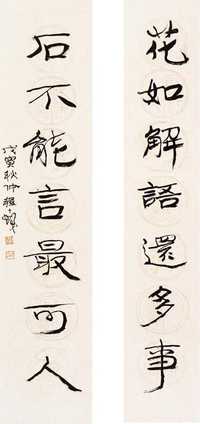 花如解語還多事
石不能言最可人
戊寅秋仲